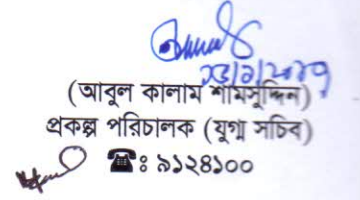 (আবুল কালাম শামসুদ্দিন)
প্রকল্প পরিচালক (যুগ্ম সচিব)
☎ঃ ৯১২৪১০০